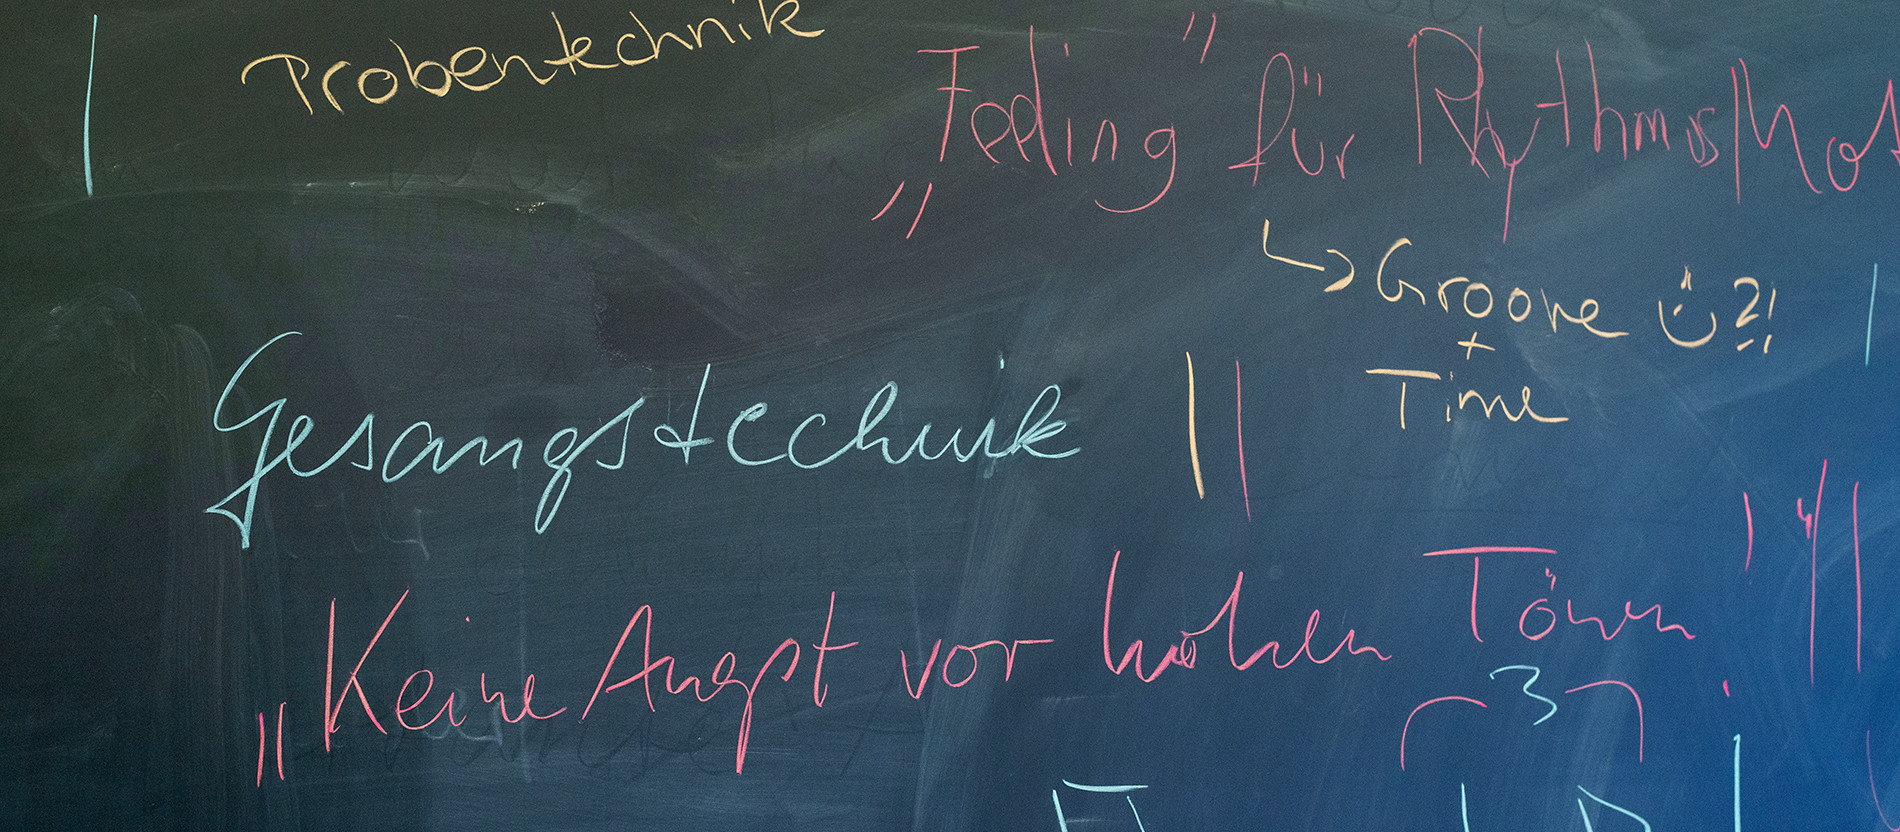 Probentechnik
„Feeling" für Rhythmus/
↳ Groove ü ?!
+
Time
Gesangstechnik
„Keine Angst vor hohen Tönen
3